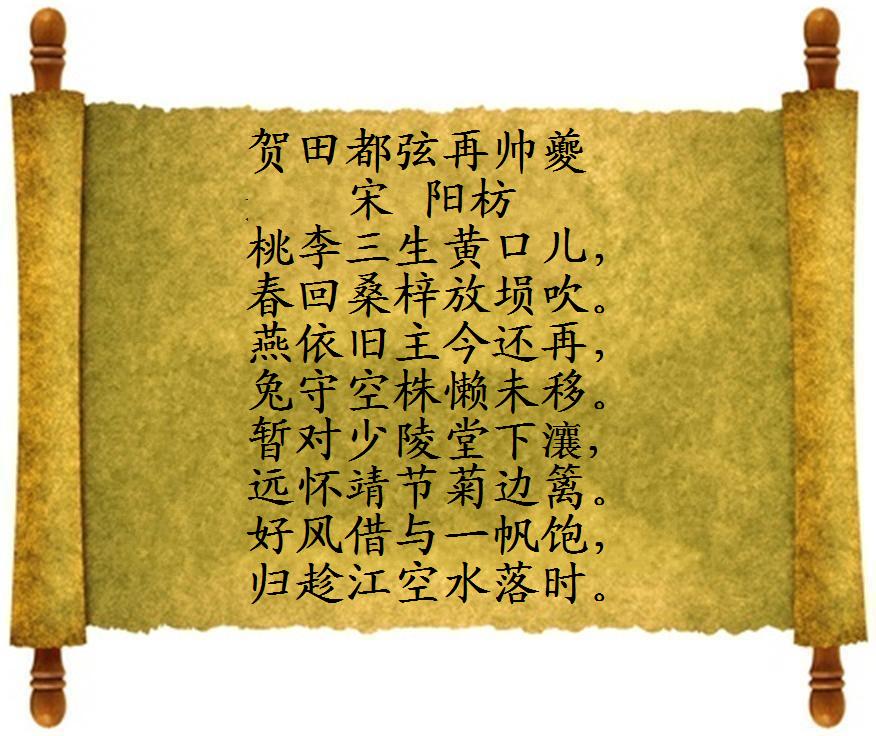 贺田都弦再帅夔
宋 阳枋
桃李三生黄口儿，
春回桑梓放埙吹。
燕依旧主今还再，
兔守空株懒未移。
暂对少陵堂下瀼，
远怀靖节菊边篱。
好风借与一帆饱，
归趁江空水落时。